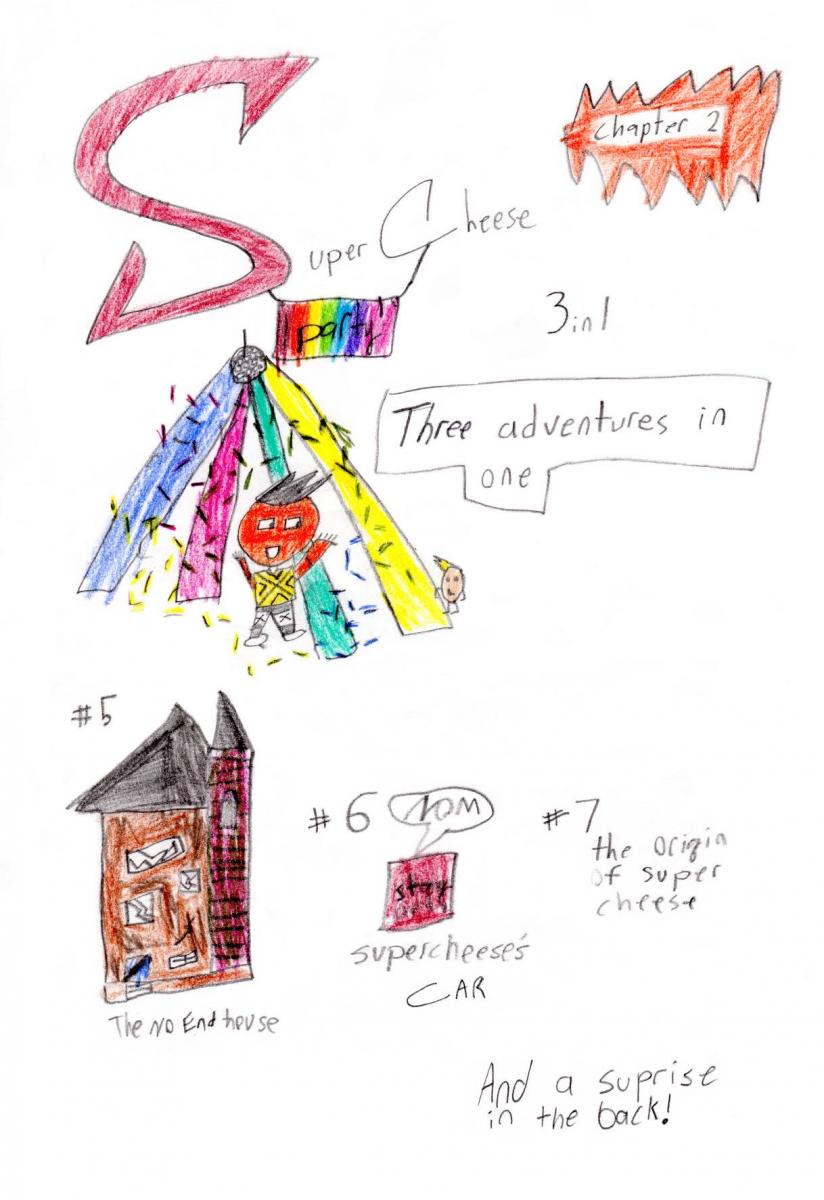 Super Cheese
chapter 2
"party"
3 in 1
Three adventures in
one
#5
The No End house
#6
NOM
stay
supercheese's
CAR
#7
the origin
of super
cheese
And a suprise
in the back!